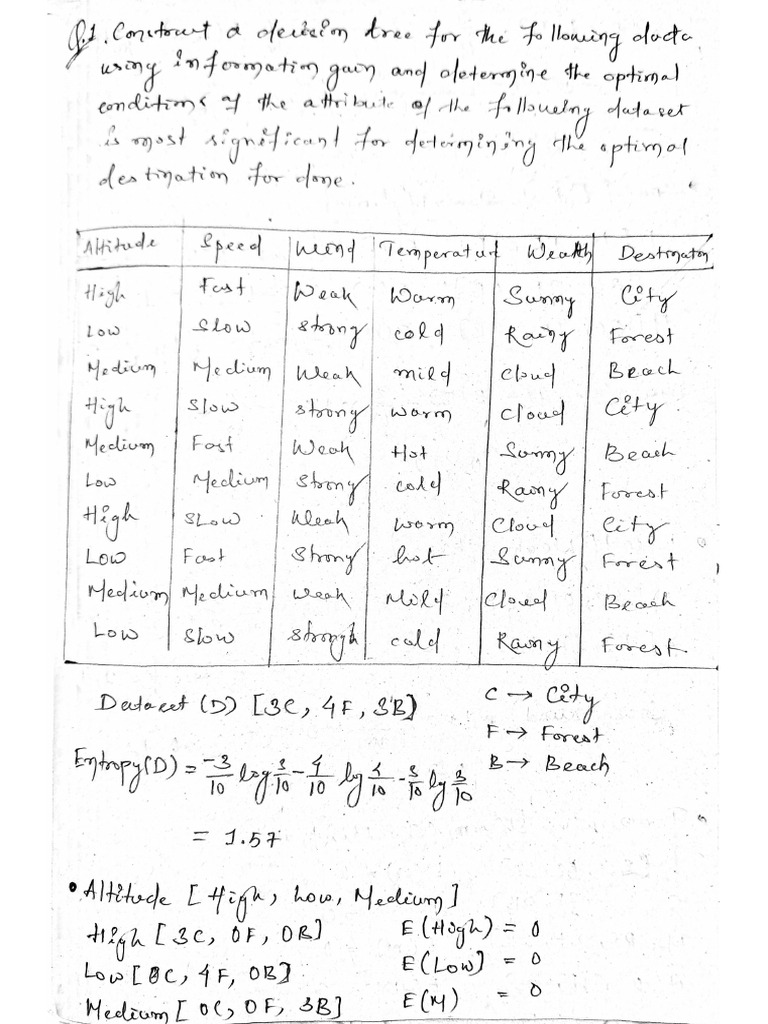 Q.1. Construct a decision tree for the following data
using information gain and determine the optimal
conditions of the attribute of the following dataset
is most significant for determining the optimal
destination for done.
Altitude Speed Wind Temperature Weath Destination
High Fast Weak Warm Sunny City
Low Slow strong cold Rainy Forest
Medium Medium Weak mild cloud Beach
High Slow strong warm cloud City
Medium Fast Weak Hot Sunny Beach
Low Medium Strong cold Rainy Forest
High Slow Weak worm Cloud City
Low Fast Strong hot Sunny Forest
Medium Medium weak Mild Cloud Beach
Low Slow strongh cold Rainy Forest
Dataset (D) [3C, 4F, 3B] C → City
F → Forest
Entropy(D) = -3/10 log 3/10 - 4/10 log 4/10 - 3/10 log 3/10 B → Beach
= 1.57
• Altitude [High, Low, Medium]
High [3C, 0F, 0B] E(High) = 0
Low [0C, 4F, 0B] E(Low) = 0
Medium [0C, 0F, 3B] E(M) = 0